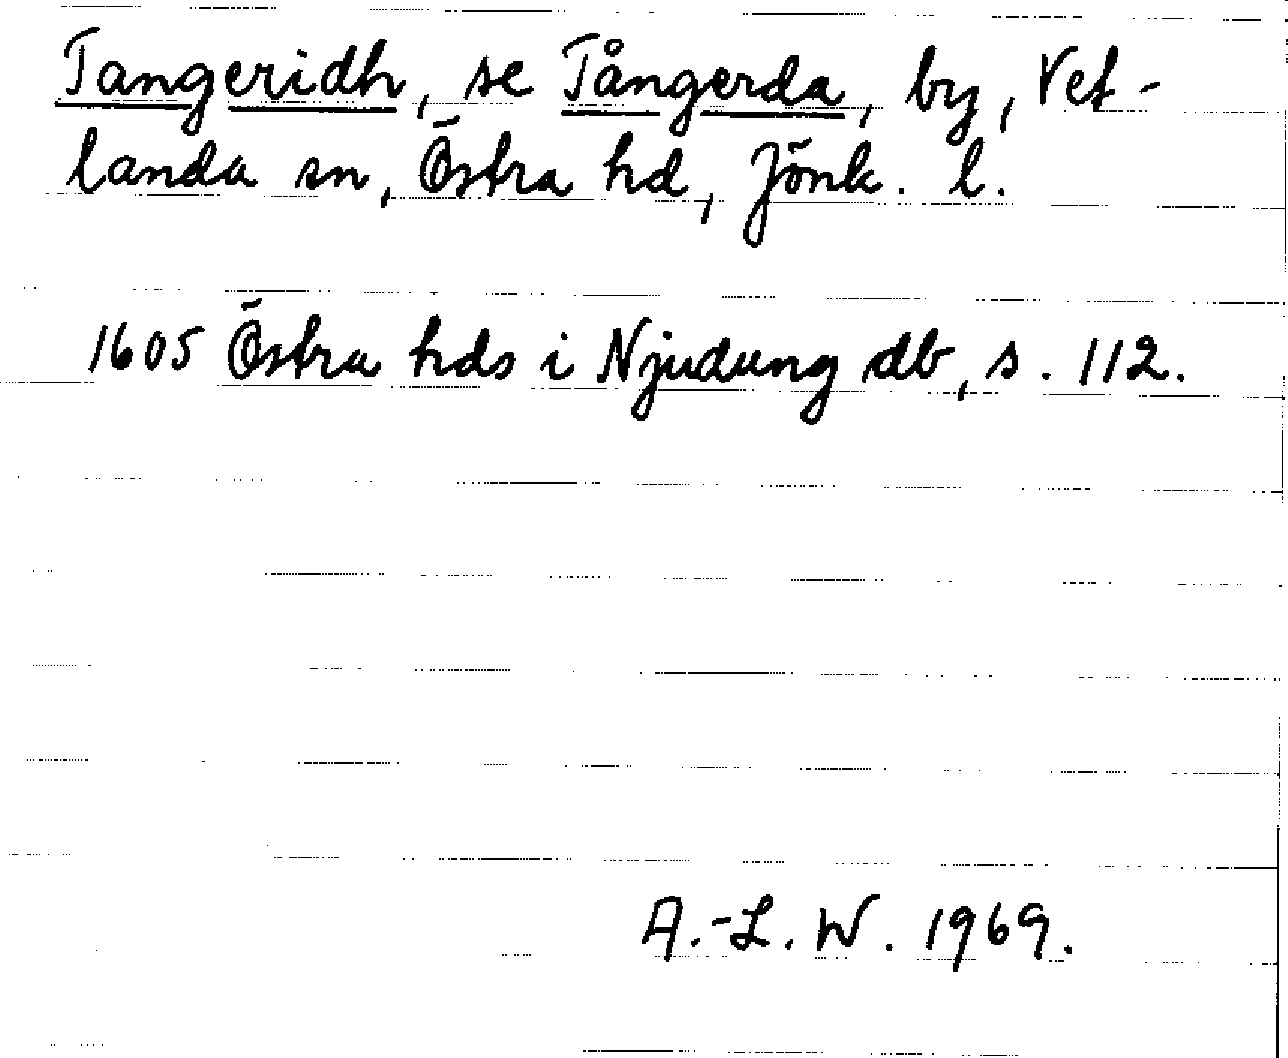 Tangeridh, se Tångerda, by, Vet-
landa sn, Östra hd, Jönk. l.
1605 Östra hds i Njudung db, s. 112.
A.-L. W. 1969.